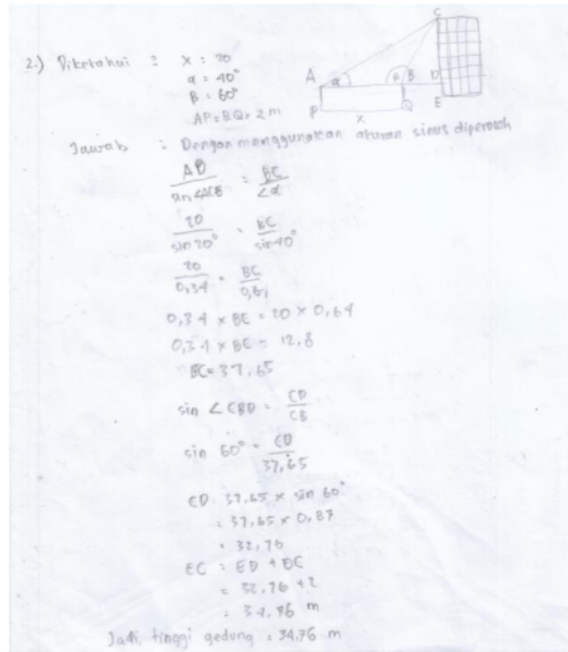 2.) Diketahui : x = 20
α = 40°
B = 60°
AP = BQ = 2 m
C
A α β B D
P x Q E
Jawab : Dengan menggunakan aturan sinus diperoleh
AB / sin ∠ACB = BC / ∠α
20 / sin 20° = BC / sin 40°
20 / 0,34 = BC / 0,64
0,34 x BC = 20 x 0,64
0,34 x BC = 12,8
BC = 37,65
sin ∠CBD = CD / CB
sin 60° = CD / 37,65
CD = 37,65 x sin 60°
= 37,65 x 0,87
= 32,76
EC = ED + DC
= 32,76 + 2
= 34,76 m
Jadi, tinggi gedung = 34,76 m